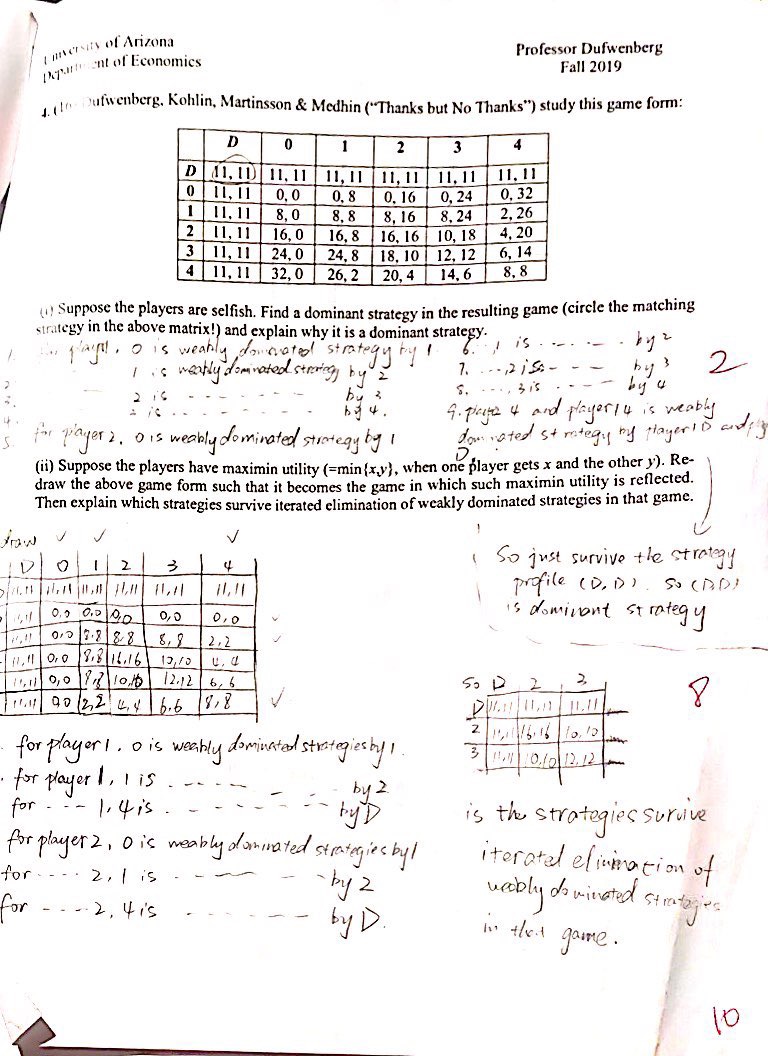 University of Arizona
Department of Economics
Professor Dufwenberg
Fall 2019
Dufwenberg, Kohlin, Martinsson & Medhin ("Thanks but No Thanks") study this game form:
D 0 1 2 3 4
D 11, 11 11, 11 11, 11 11, 11 11, 11 11, 11
0 11, 11 0, 0 0, 8 0, 16 0, 24 0, 32
1 11, 11 8, 0 8, 8 8, 16 8, 24 2, 26
2 11, 11 16, 0 16, 8 16, 16 10, 18 4, 20
3 11, 11 24, 0 24, 8 18, 10 12, 12 6, 14
4 11, 11 32, 0 26, 2 20, 4 14, 6 8, 8
(i) Suppose the players are selfish. Find a dominant strategy in the resulting game (circle the matching
strategy in the above matrix!) and explain why it is a dominant strategy.
1. player1. 0 is weakly dominated strategy by 1
2. 1 is weakly dominated strategy by 2
3. 2 is - - - - by 3
4. 2 is - - - - by 4.
5. for player 2, 0 is weakly dominated strategy by 1
6. ..., 1 is - - - - by 2
7. ...., 2 is - - - by 3
8. ...., 3 is - - - - by 4
9. player 4 and player 1 4 is weakly
dominated strategy by player 1 D and
D
2
(ii) Suppose the players have maximin utility (=min{x,y}, when one player gets x and the other y). Re-
draw the above game form such that it becomes the game in which such maximin utility is reflected.
Then explain which strategies survive iterated elimination of weakly dominated strategies in that game.
draw ✓ ✓ ✓
D 0 1 2 3 4
11,11 11,11 11,11 11,11 11,11 11,11
11,11 0,0 0,0 0,0 0,0 0,0
11,11 0,0 8,8 8,8 8,8 2,2
11,11 0,0 8,8 16,16 10,10 4,4
11,11 0,0 8,8 10,10 12,12 6,6
11,11 0,0 2,2 4,4 6,6 8,8
So just survive the strategy
profile (D, D). so (D,D)
is dominant strategy
so D 2 3
D 11,11 11,11 11,11
2 11,11 16,16 10,10
3 11,11 10,10 12,12
8
. for player 1. 0 is weakly dominated strategies by 1.
. for player 1, 1 is - - - - - by 2
for - - - 1, 4 is. - - - - - by D
for player 2, 0 is weakly dominated strategies by 1
for - - - - 2, 1 is - - - - - by 2
for - - - - 2, 4 is - - - - - by D.
is the strategies survive
iterated elimination of
weakly dominated strategies
in that game.
10